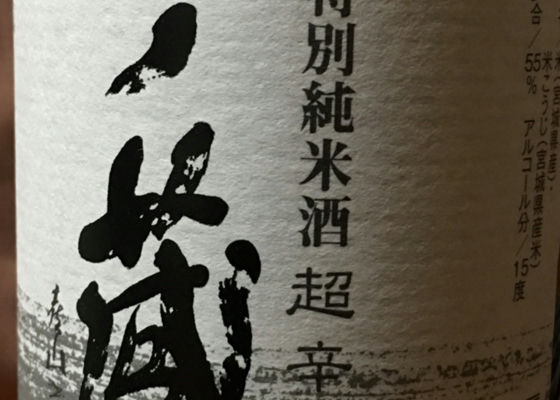 米(宮城県産)
米こうじ(宮城県産米)
合/55% アルコール分/15度
特別純米酒 超辛
一ノ蔵